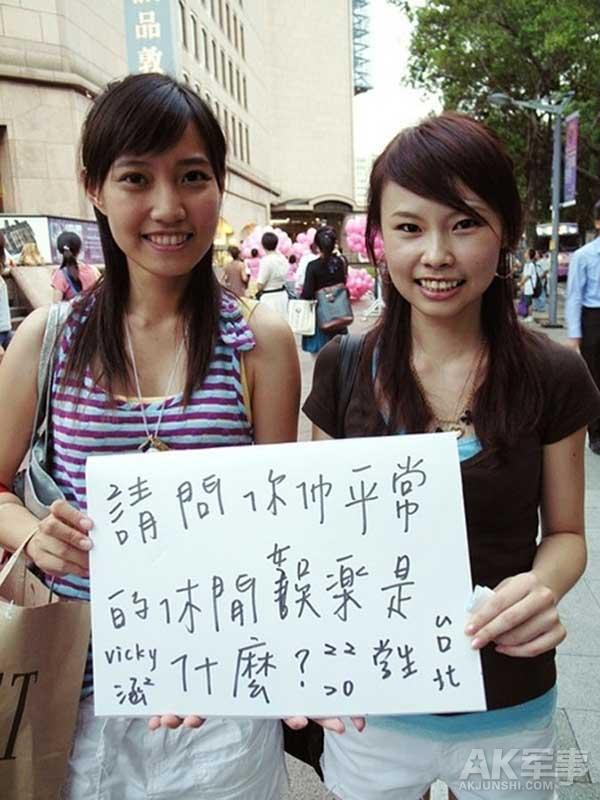 品敦
請問你们平常
的休閒娛樂是
什麼?
vicky
涵²
22
20
学生
台北
AK军事
AKJUNSHI.COM